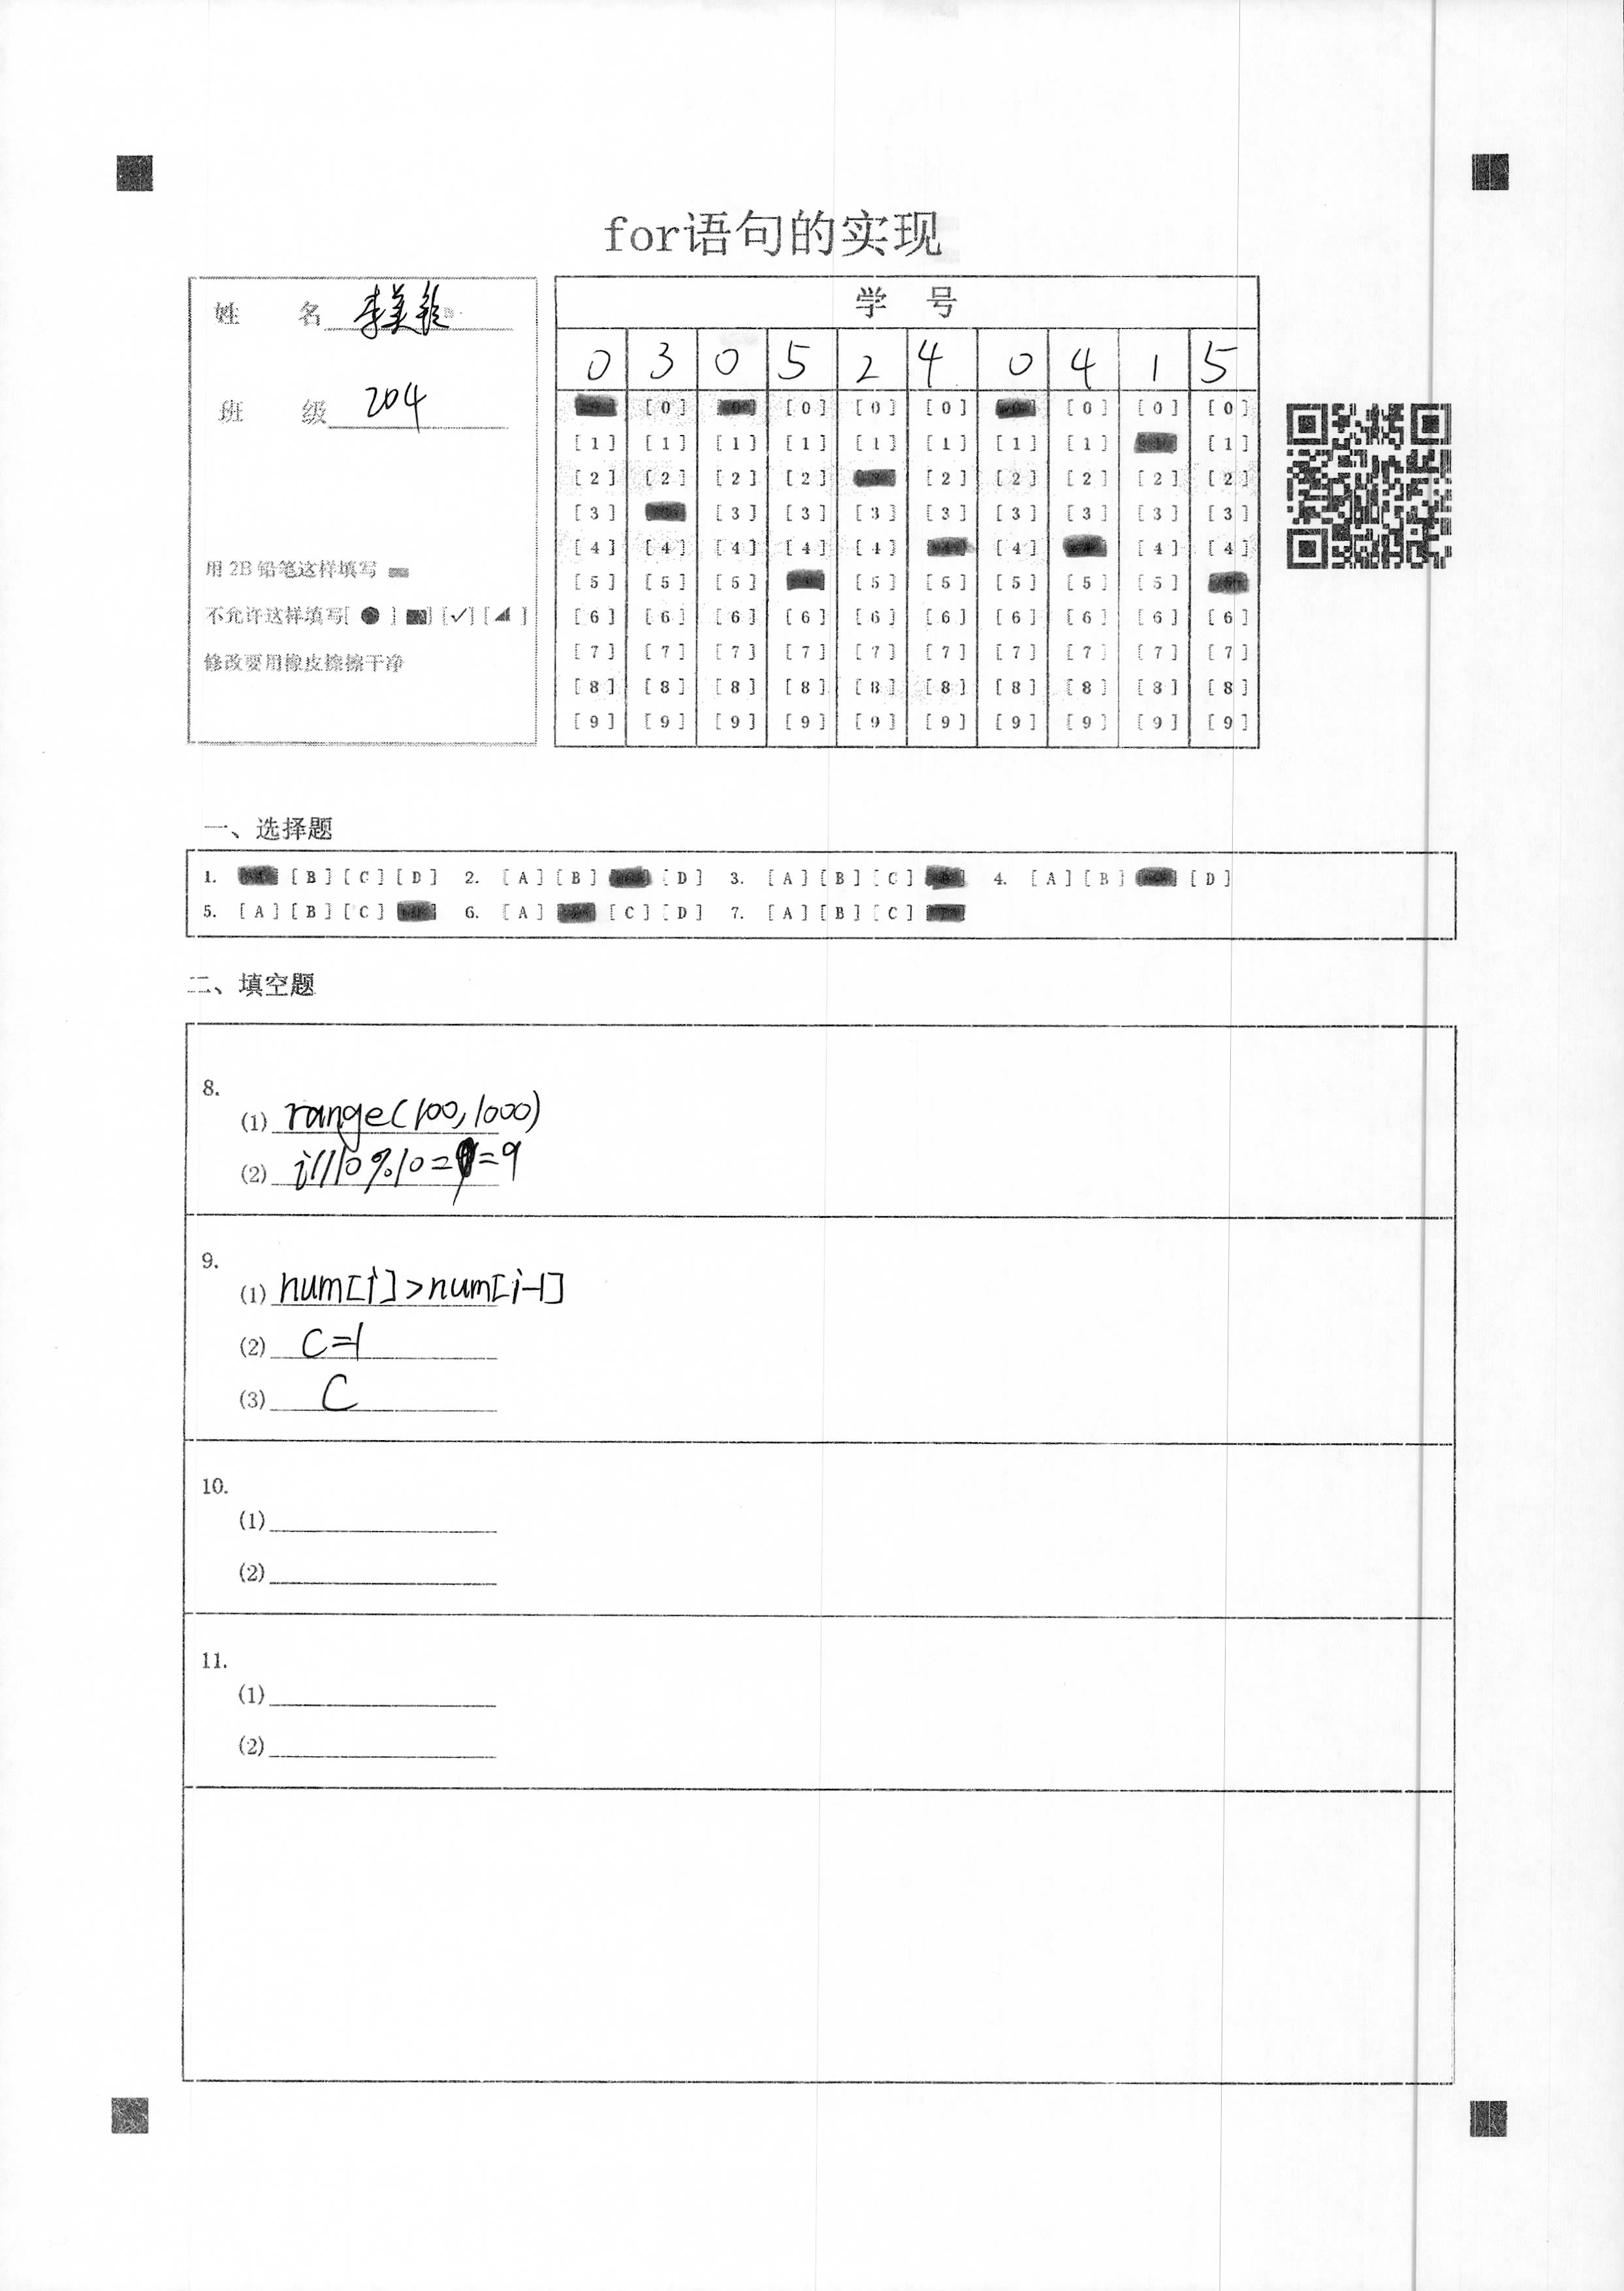 for语句的实现
姓 名 李美
班 级 204
用 2B 铅笔这样填写
不允许这样填写[ ● ] [■] [✓] [◢ ]
修改要用橡皮擦擦干净
学 号
0 3 0 5 2 4 0 4 1 5
[0] [0] [0] [0] [0] [0] [0]
[1] [1] [1] [1] [1] [1] [1] [1] [1]
[2] [2] [2] [2] [2] [2] [2] [2] [2]
[3] [3] [3] [3] [3] [3] [3] [3] [3]
[4] [4] [4] [4] [4] [4] [4] [4]
[5] [5] [5] [5] [5] [5] [5] [5]
[6] [6] [6] [6] [6] [6] [6] [6] [6] [6]
[7] [7] [7] [7] [7] [7] [7] [7] [7] [7]
[8] [8] [8] [8] [8] [8] [8] [8] [8] [8]
[9] [9] [9] [9] [9] [9] [9] [9] [9] [9]
一、选择题
1. [B] [C] [D] 2. [A] [B] [D] 3. [A] [B] [C] 4. [A] [B] [D]
5. [A] [B] [C] 6. [A] [C] [D] 7. [A] [B] [C]
二、填空题
8.
(1) range(100,1000)
(2) i//10%10==9
9.
(1) num[i]>num[i-1]
(2) c=1
(3) c
10.
(1)
(2)
11.
(1)
(2)